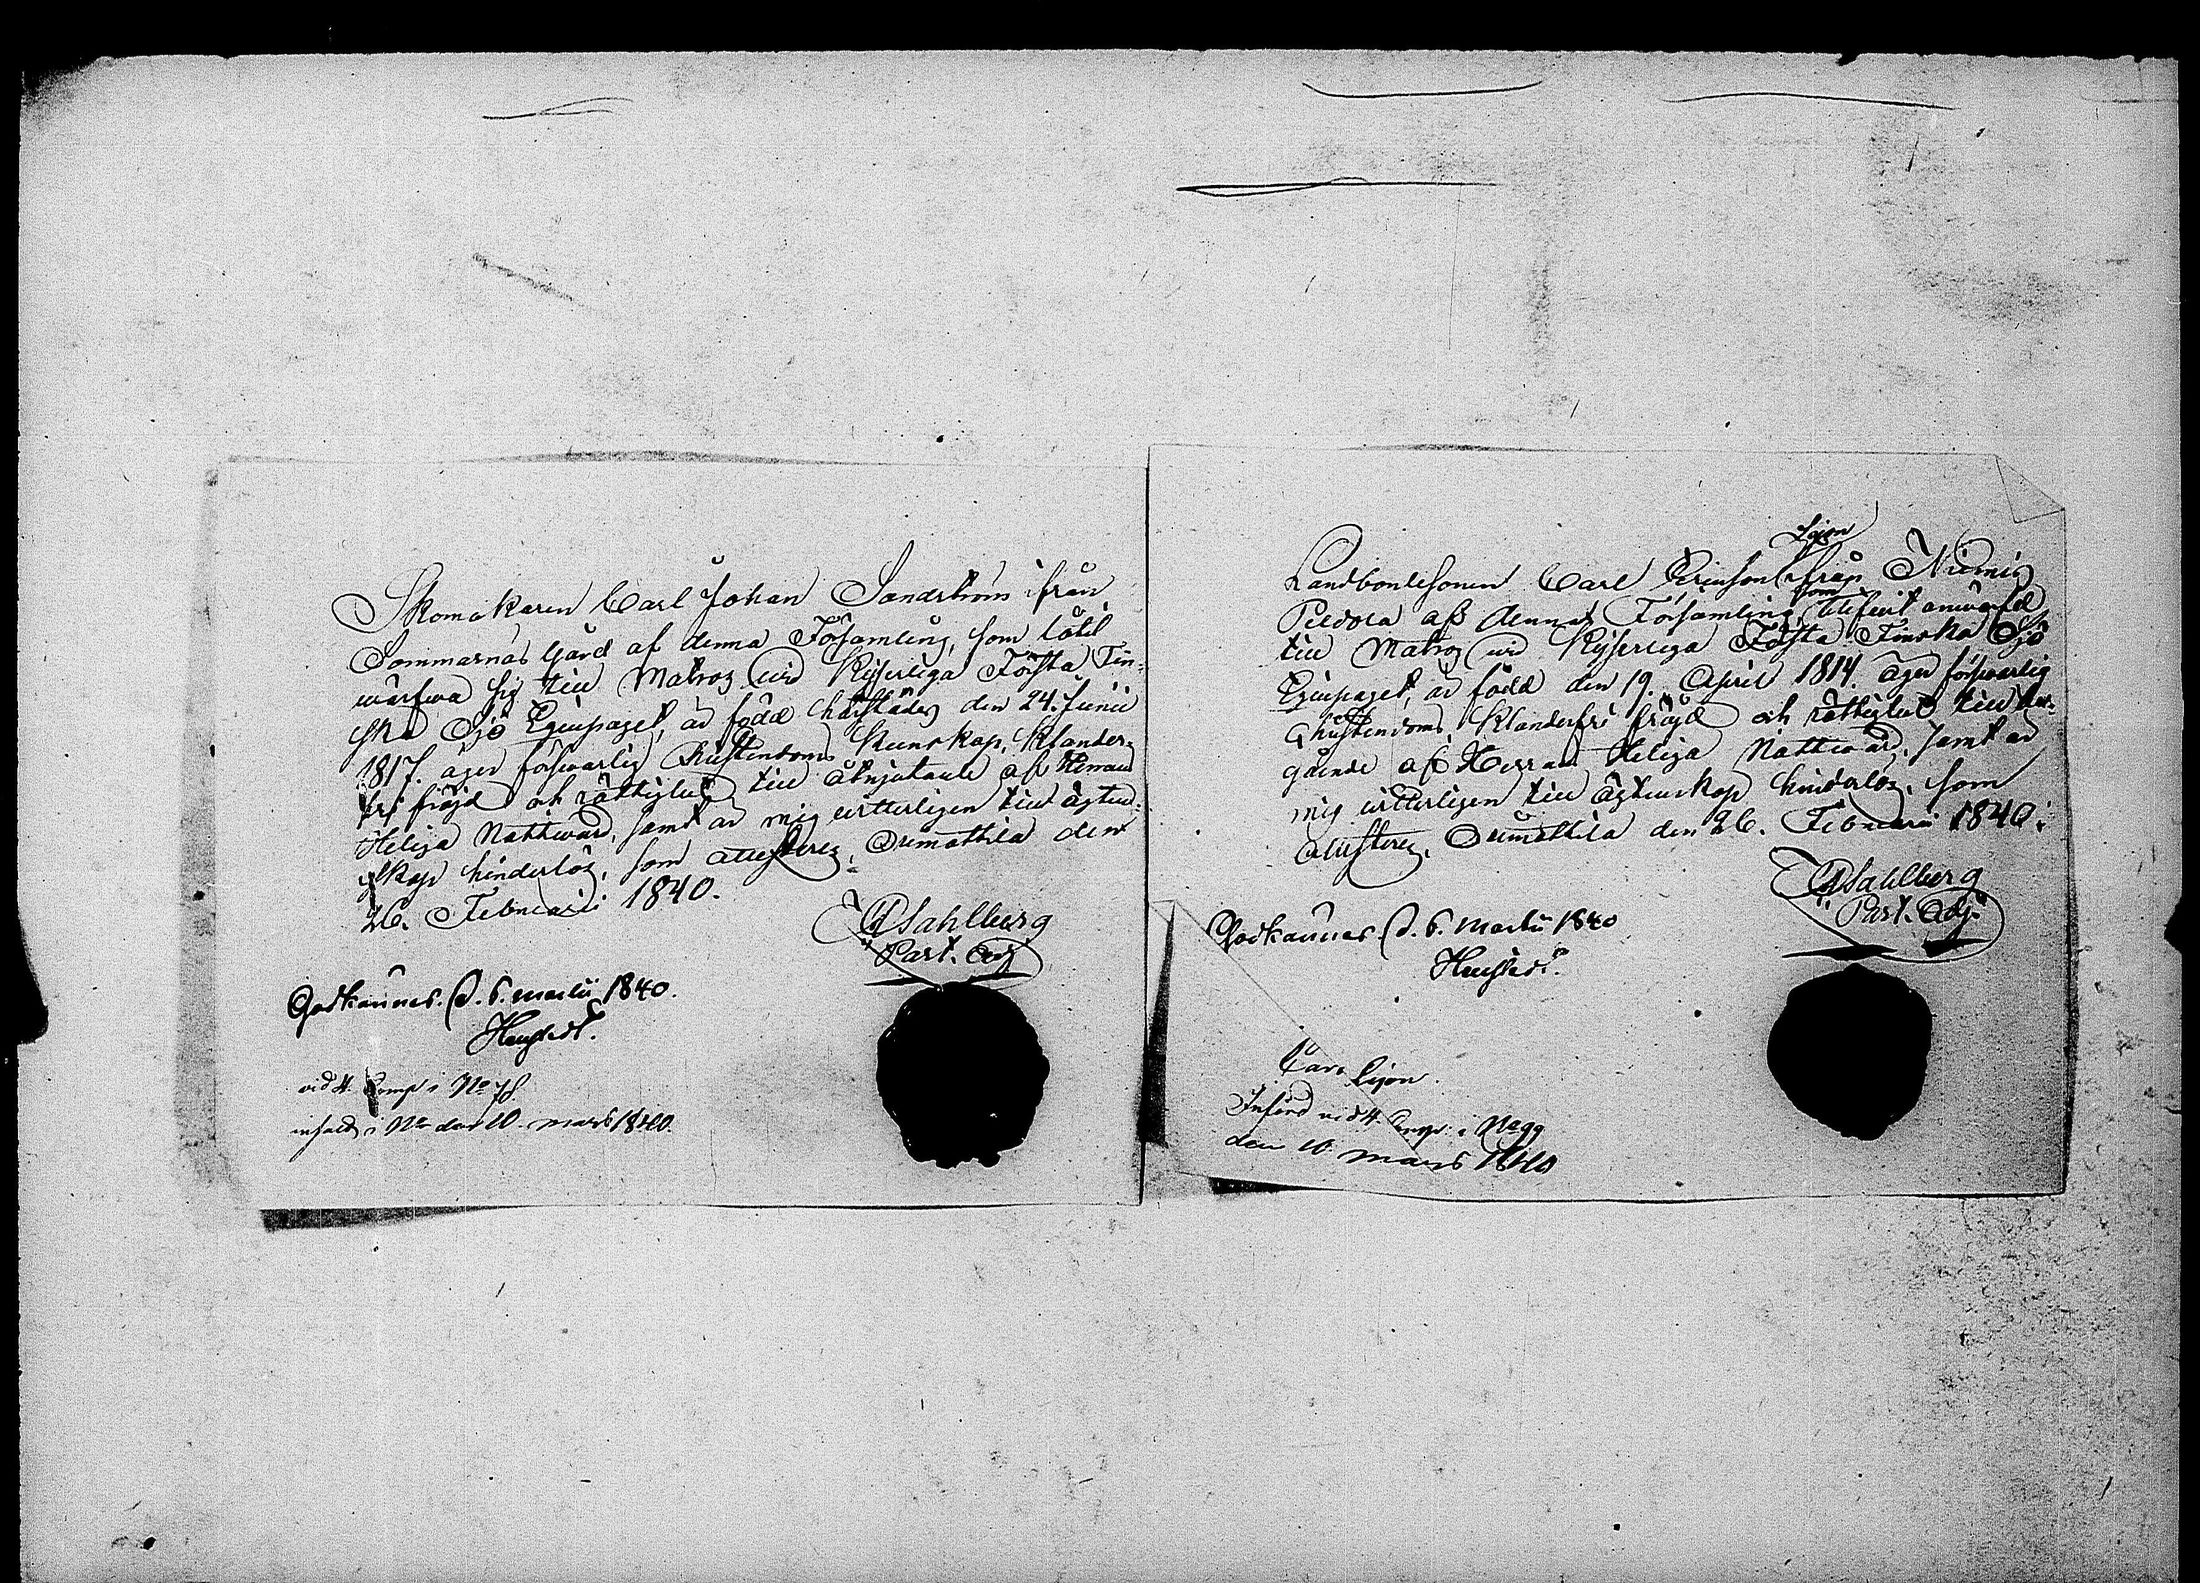 Skomakaren Carl Johan Sandström ifrån
Sommarnäs Gård af denna Församling, som låtit
wärfwa sig till Matros wid Kejserliga Första Fin-
ska Sjö Equipaget, är född härstädes den 24. Junii
1817. äger förswarlig Christendoms Kunskap, Klander-
fri fräjd och rättighet till åtnjutande af Herrans
Heliga Nattward, samt är mig witterligen till ägten-
skap hinderlös, som attesteras. Orimattila den
26. Februarii 1840.
Sahlberg
Past. Adj.
Godkännes. d. 6. Martii 1840.
vid 4. Comp. i No 78.
införd i den 10. mars 1840.
Lejon
Landbondesonen Carl Ericsson ifrån Niemis
Peldola af denna Församling som blifwit anwärfd
till Matros wid Kejserliga Första Finska Sjö
Equipaget, är född den 19. April 1814. äger förswarlig
Christendoms, Klanderfri fräjd och rättighet till be-
gående af Herrans Heliga Nattward, samt är
mig witterligen till ägtenskap hinderlös, som
attesteras. Orimattila den 26. Februarii 1840.
Sahlberg
Past. Adj.
Godkännes. d. 6. Martii 1840
Carl Lejon.
Införd vid 4. Comp. i No 99
den 10 mars 1840